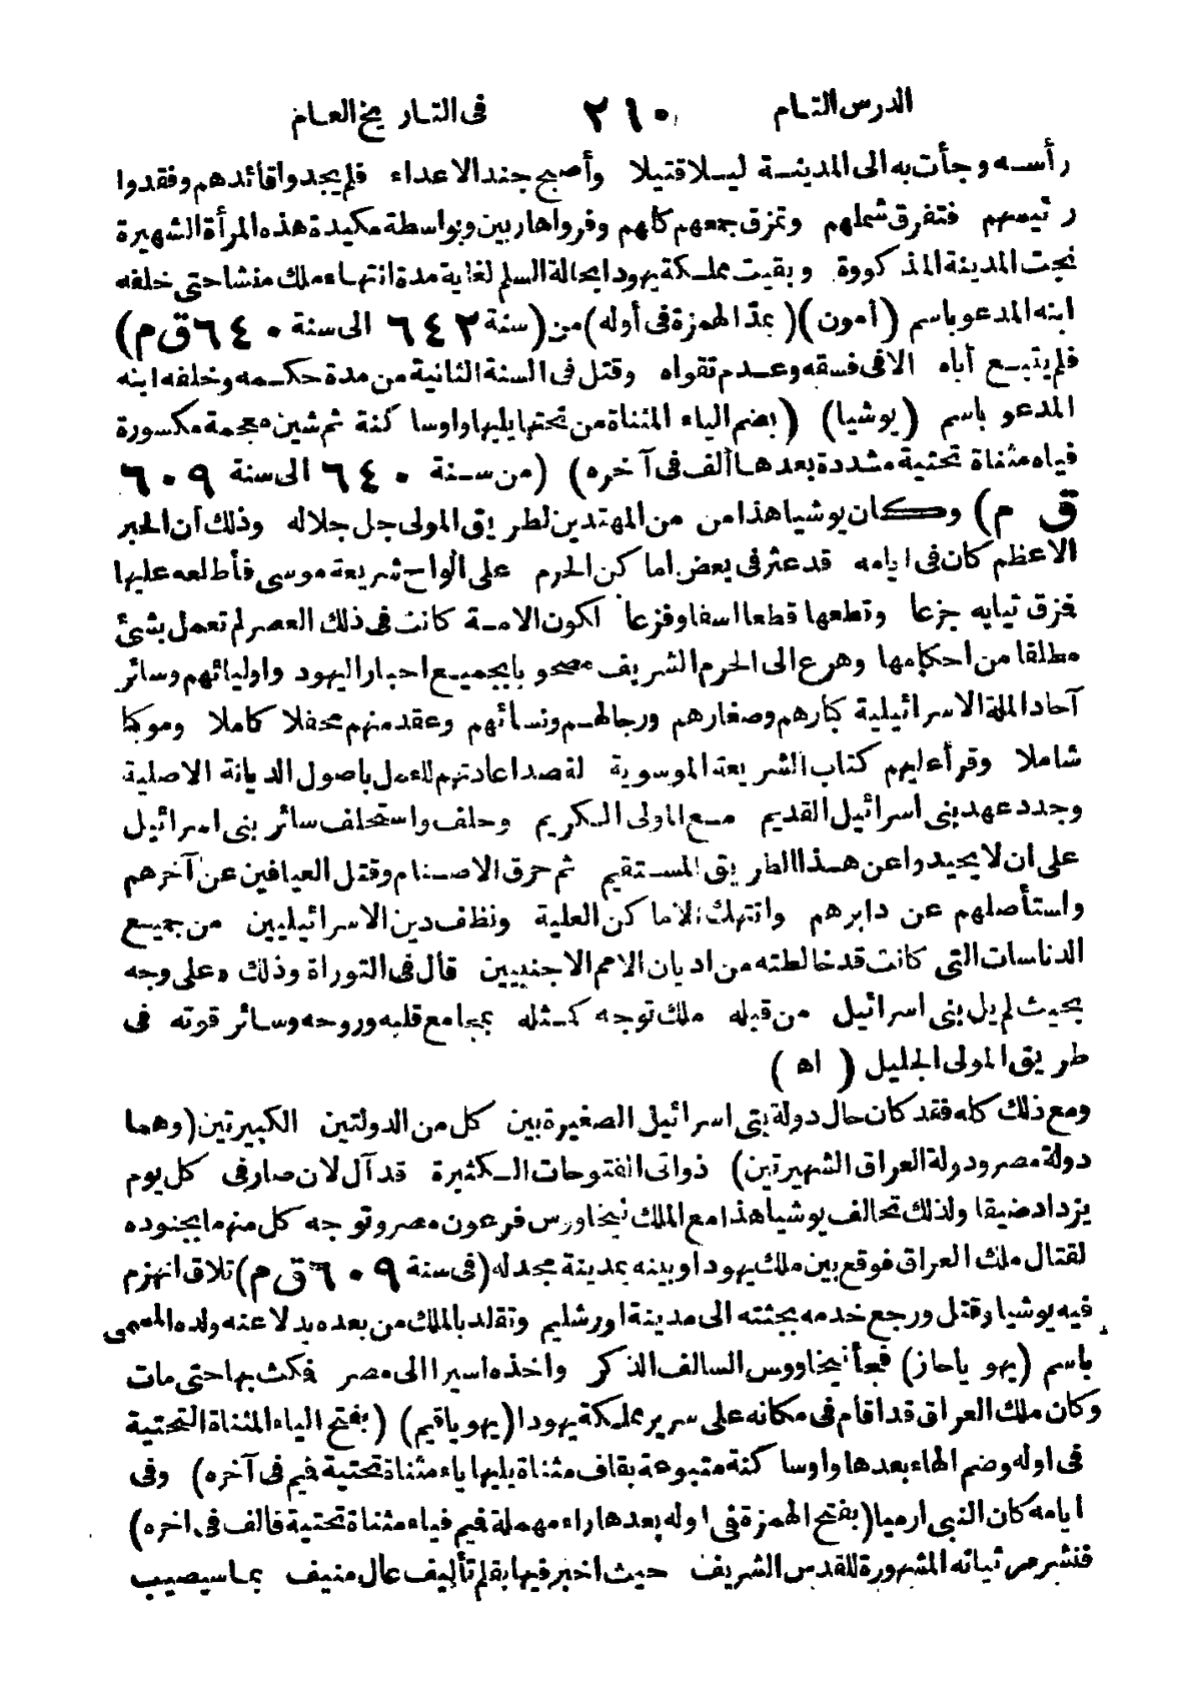 الدرس التام ٢١٠ فى التاريخ العام
رأسه وجأت به الى المدينة ليلا قتيلا وأصبح جند الاعداء فلم يجدوا قائدهم وفقدوا
رئيسهم فتفرق شملهم وتمزق جمعهم كلهم وفروا هاربين وبواسطة مكيدة هذه المرأة الشهيرة
نجت المدينة المذكورة وبقيت مملكة يهودا بحالة السلم لغاية مدة انتهاء ملك منشا حتى خلفه
ابنه المدعو باسم (أمون) (بمد الهمزة فى أوله) من (سنة ٦٤٢ الى سنة ٦٤٠ ق م)
فلم يتبع أباه الا فى فسقه وعدم تقواه وقتل فى السنة الثانية من مدة حكمه وخلفه ابنه
المدعو باسم (يوشيا) (بضم الياء المثناة من تحتها يليها واو ساكنة ثم شين معجمة مكسورة
فياء مثناة تحتية مشددة بعدها ألف فى آخره) (من سنة ٦٤٠ الى سنة ٦٠٩
ق م) وكان يوشيا هذا من من المهتدين لطريق المولى جل جلاله وذلك أن الحبر
الاعظم كان فى ايامه قد عثر فى بعض اماكن الحرم على الواح شريعة موسى فأطلعه عليها
فمزق ثيابه جزعا وقطعها قطعا اسفا وفزعا لكون الامة كانت فى ذلك العصر لم تعمل بشئ
مطلقا من احكامها وهرع الى الحرم الشريف مصحوبا بجميع احبار اليهود واوليائهم وسائر
آحاد الملة الاسرائيلية كبارهم وصغارهم ورجالهم ونسائهم وعقد منهم محفلا كاملا وموكبا
شاملا وقرأ عليهم كتاب الشريعة الموسوية لقصد اعادتهم للعمل باصول الديانة الاصلية
وجدد عهد بنى اسرائيل القديم مع المولى الكريم وحلف واستحلف سائر بنى اسرائيل
على ان لا يحيدوا عن هذا الطريق المستقيم ثم حرق الاصنام وقتل العيافين عن آخرهم
واستأصلهم عن دابرهم وانتهك الاماكن العلية ونظف دين الاسرائيليين من جميع
الدناسات التى كانت قد خالطته من اديان الامم الاجنبيين قال فى التوراة وذلك على وجه
بحيث لم يل بنى اسرائيل من قبله ملك توجه كمثله بمجامع قلبه وروحه وسائر قوته فى
طريق المولى الجليل (اه)
ومع ذلك كله فقد كان حال دولة بنى اسرائيل الصغيرة بين كل من الدولتين الكبيرتين (وهما
دولة مصر ودولة العراق الشهيرتين) ذواتى الفتوحات الكثيرة قد آل لان صار فى كل يوم
يزداد ضيقا ولذلك تحالف يوشيا هذا مع الملك نيخاورس فرعون مصر وتوجه كل منهما بجنوده
لقتال ملك العراق فوقع بين ملك يهودا وبينه بمدينة مجدله (فى سنة ٦٠٩ ق م) تلاق انهزم
فيه يوشيا وقتل ورجع خدمه بجثته الى مدينة اورشليم وتقلد بالملك من بعده بدلا عنه ولده المسمى
باسم (يهوياحاز) فجأ نيخاووس السالف الذكر واخذه اسيرا الى مصر فمكث بها حتى مات
وكان ملك العراق قد اقام فى مكانه على سرير مملكة يهودا (يهوياقيم) (بفتح الياء المثناة التحتية
فى اوله وضم الهاء بعدها واو ساكنة متبوعة بقاف مثناة يليها ياء مثناة تحتية فميم فى آخره) وفى
ايامه كان النبى ارميا (بفتح الهمزة فى اوله بعدها راء مهملة فميم فياء مثناة تحتية فالف فى اخره)
فنشر مرثياته المشهورة للقدس الشريف حيث اخبر فيها بقلم تأليف عال منيف بما سيصيب